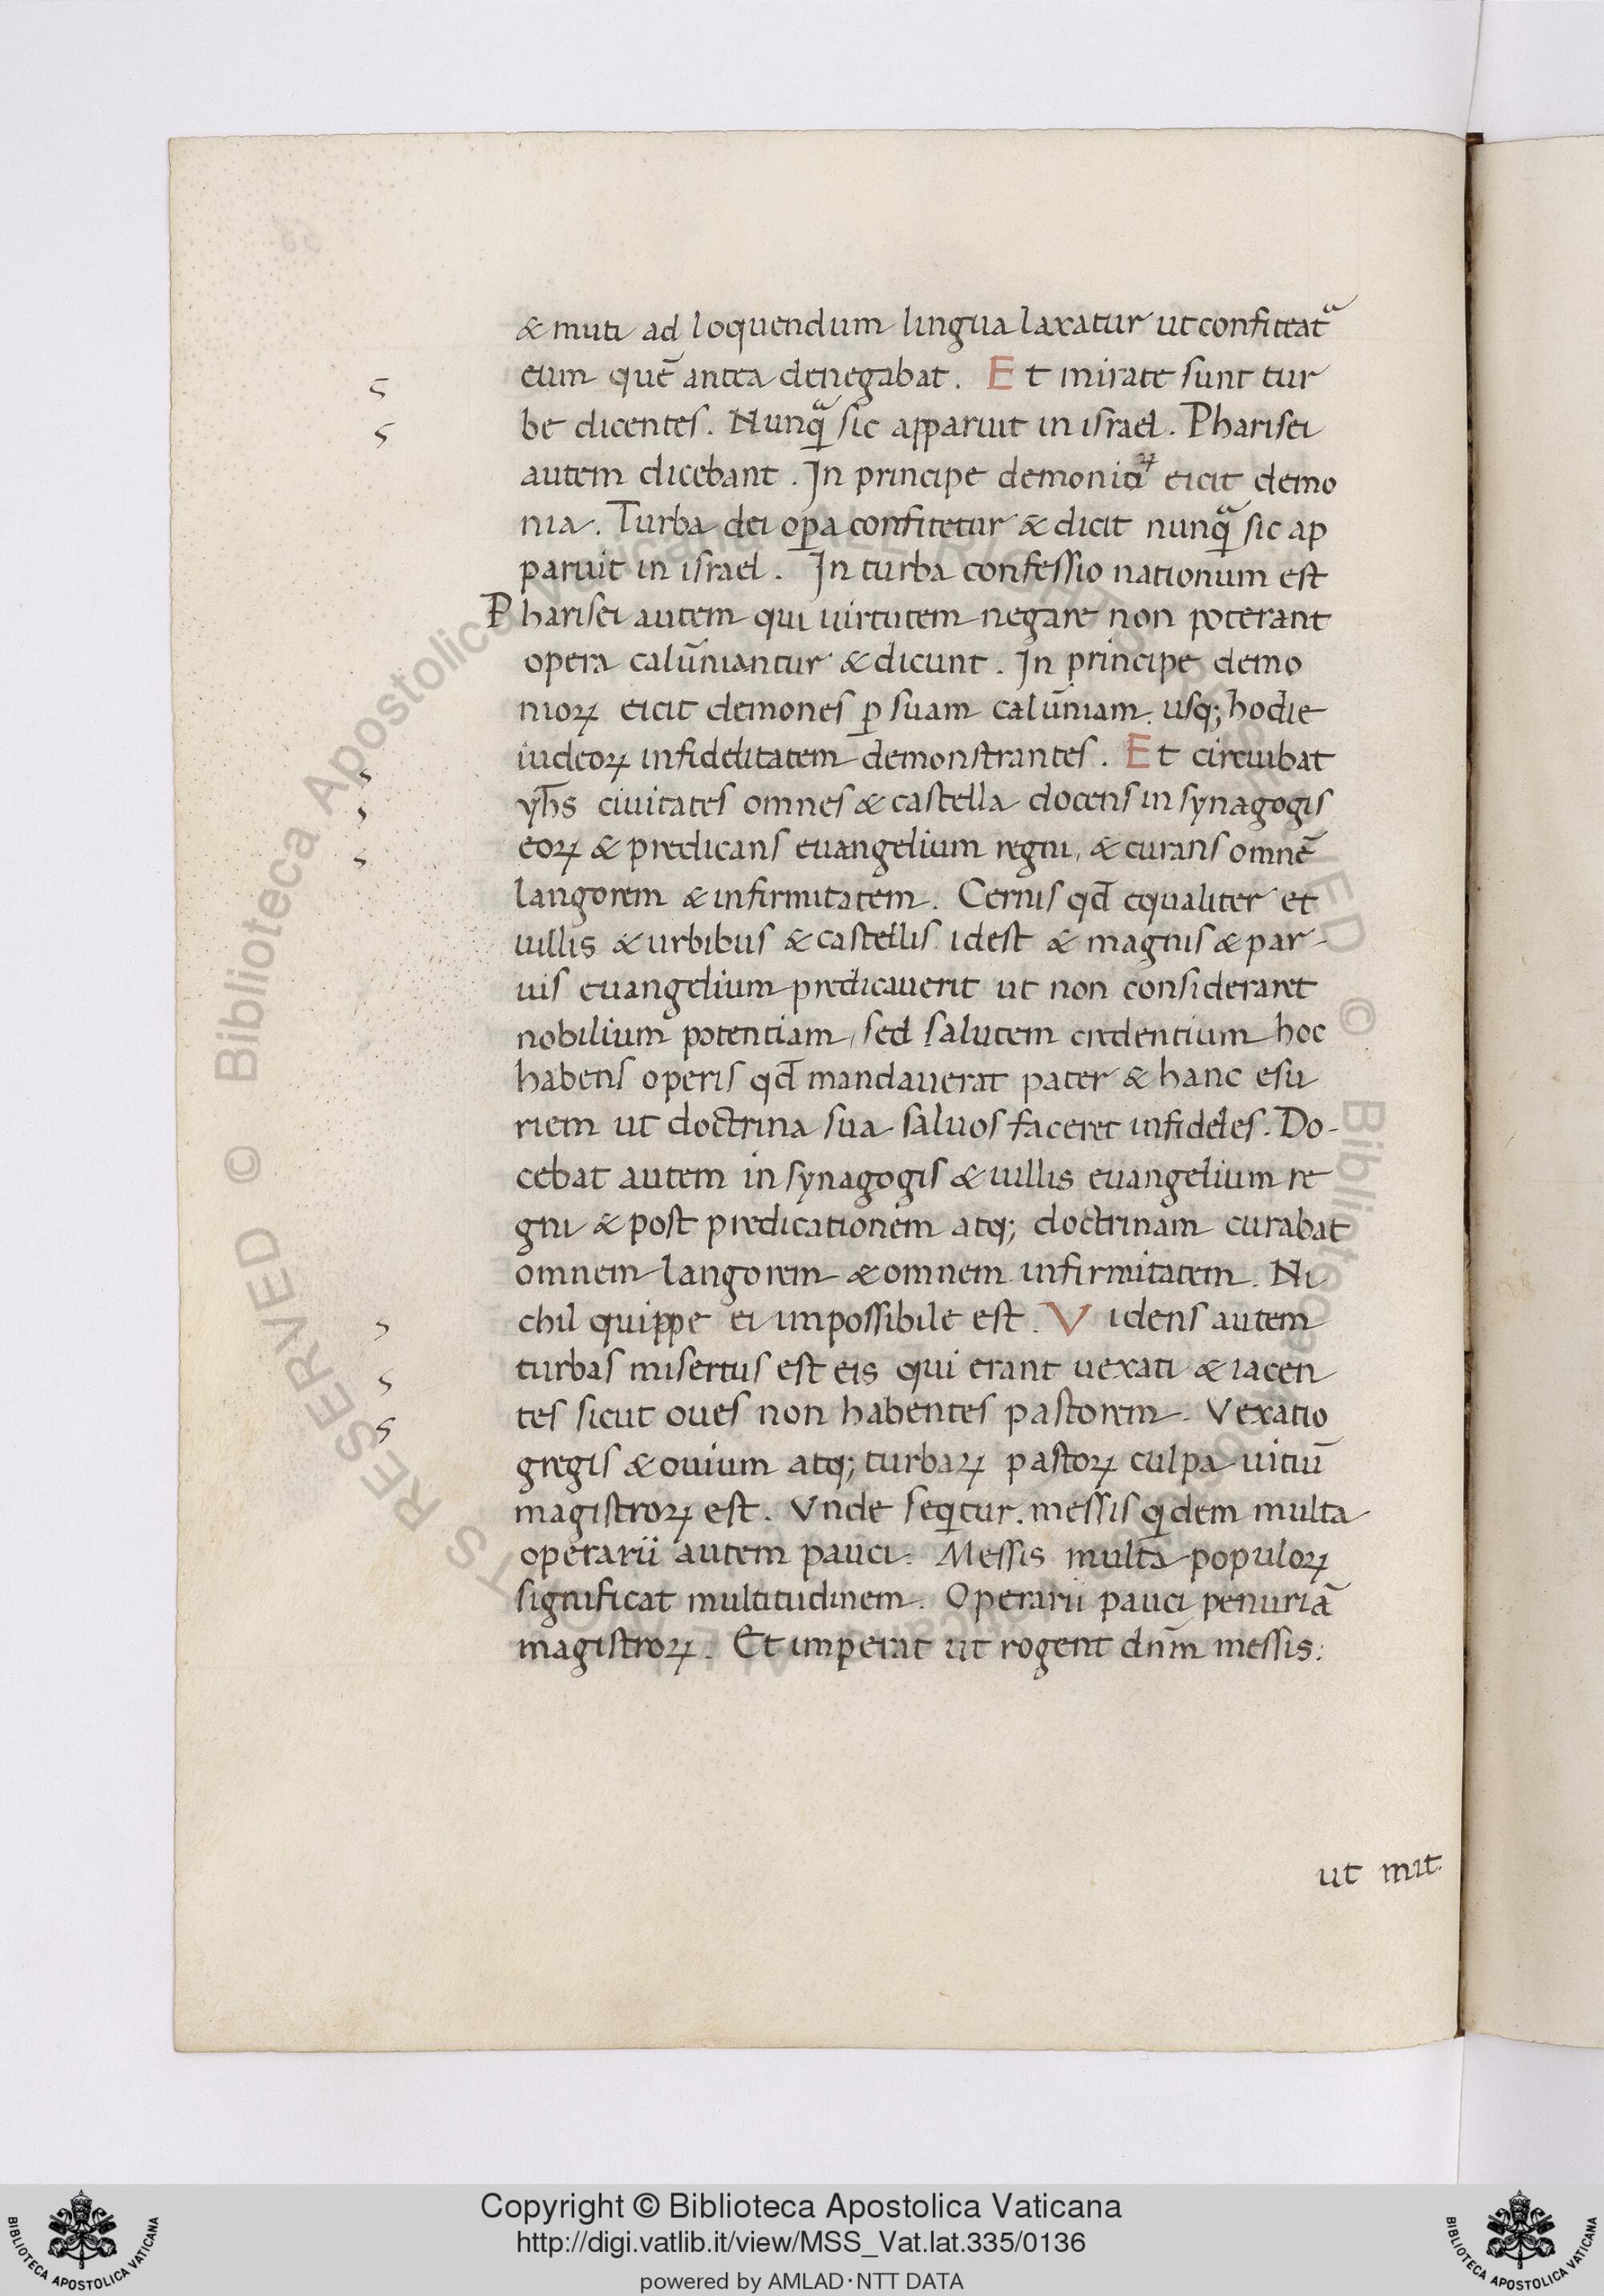 & muti ad loquendum lingua laxatur ut confiteatᵃ
eum quē antea denegabat. Et mirate sunt tur
be dicentes. Nunqᵃ sic apparuit in israel. Pharisei
autem dicebant. In principe demonioꝝ eicit demo
nia. Turba dei oꝑa confitetur & dicit nunqᵃ sic ap
paruit in israel. In turba confessio nationum est
Pharisei autem qui uirtutem negare non poterant
opera calūniantur & dicunt. In principe demo
nioꝝ eicit demones ꝑ suam calūniam usq; hodie
iudeoꝝ infidelitatem demonstrantes. Et circuibat
yh̄s ciuitates omnes & castella docens in synagogis
eoꝝ & predicans euangelium regni, & curans omnē
langorem & infirmitatem. Cernis qd̄ equaliter et
uillis & urbibus & castellis idest & magnis & par-
uis euangelium predicauerit ut non consideraret
nobilium potentiam, sed salutem credentium hoc
habens operis qd̄ mandauerat pater & hanc esu
riem ut doctrina sua saluos faceret infideles. Do-
cebat autem in synagogis & uillis euangelium re
gni & post predicationem atq; doctrinam curabat
omnem langorem & omnem infirmitatem. Ni
chil quippe ei impossibile est. Videns autem
turbas misertus est eis qui erant uexati & iacen
tes sicut oues non habentes pastorem. Vexatio
gregis & ouium atq; turbaꝝ pastoꝝ culpa uitiū
magistroꝝ est. Vnde seqͥtur. messis qͥdem multa
operarii autem pauci. Messis multa populoꝝ
significat multitudinem. Operarii pauci penuriā
magistroꝝ. Et imperat ut rogent dn̄m messis:
ut mit.
Copyright © Biblioteca Apostolica Vaticana
http://digi.vatlib.it/view/MSS_Vat.lat.335/0136
powered by AMLAD·NTT DATA
BIBLIOTECA APOSTOLICA VATICANA
BIBLIOTECA APOSTOLICA VATICANA